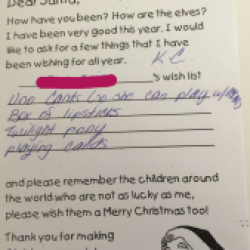 Dear Santa,
How have you been? How are the elves?
I have been very good this year. I would
like to ask for a few things that I have
been wishing for all year.
K C
's wish list
Uno Cards (so she can play w/
Box of lipsticks
Twilight pony
playing cards
and please remember the children around
the world who are not as lucky as me,
please wish them a Merry Christmas too!
Thank you for making